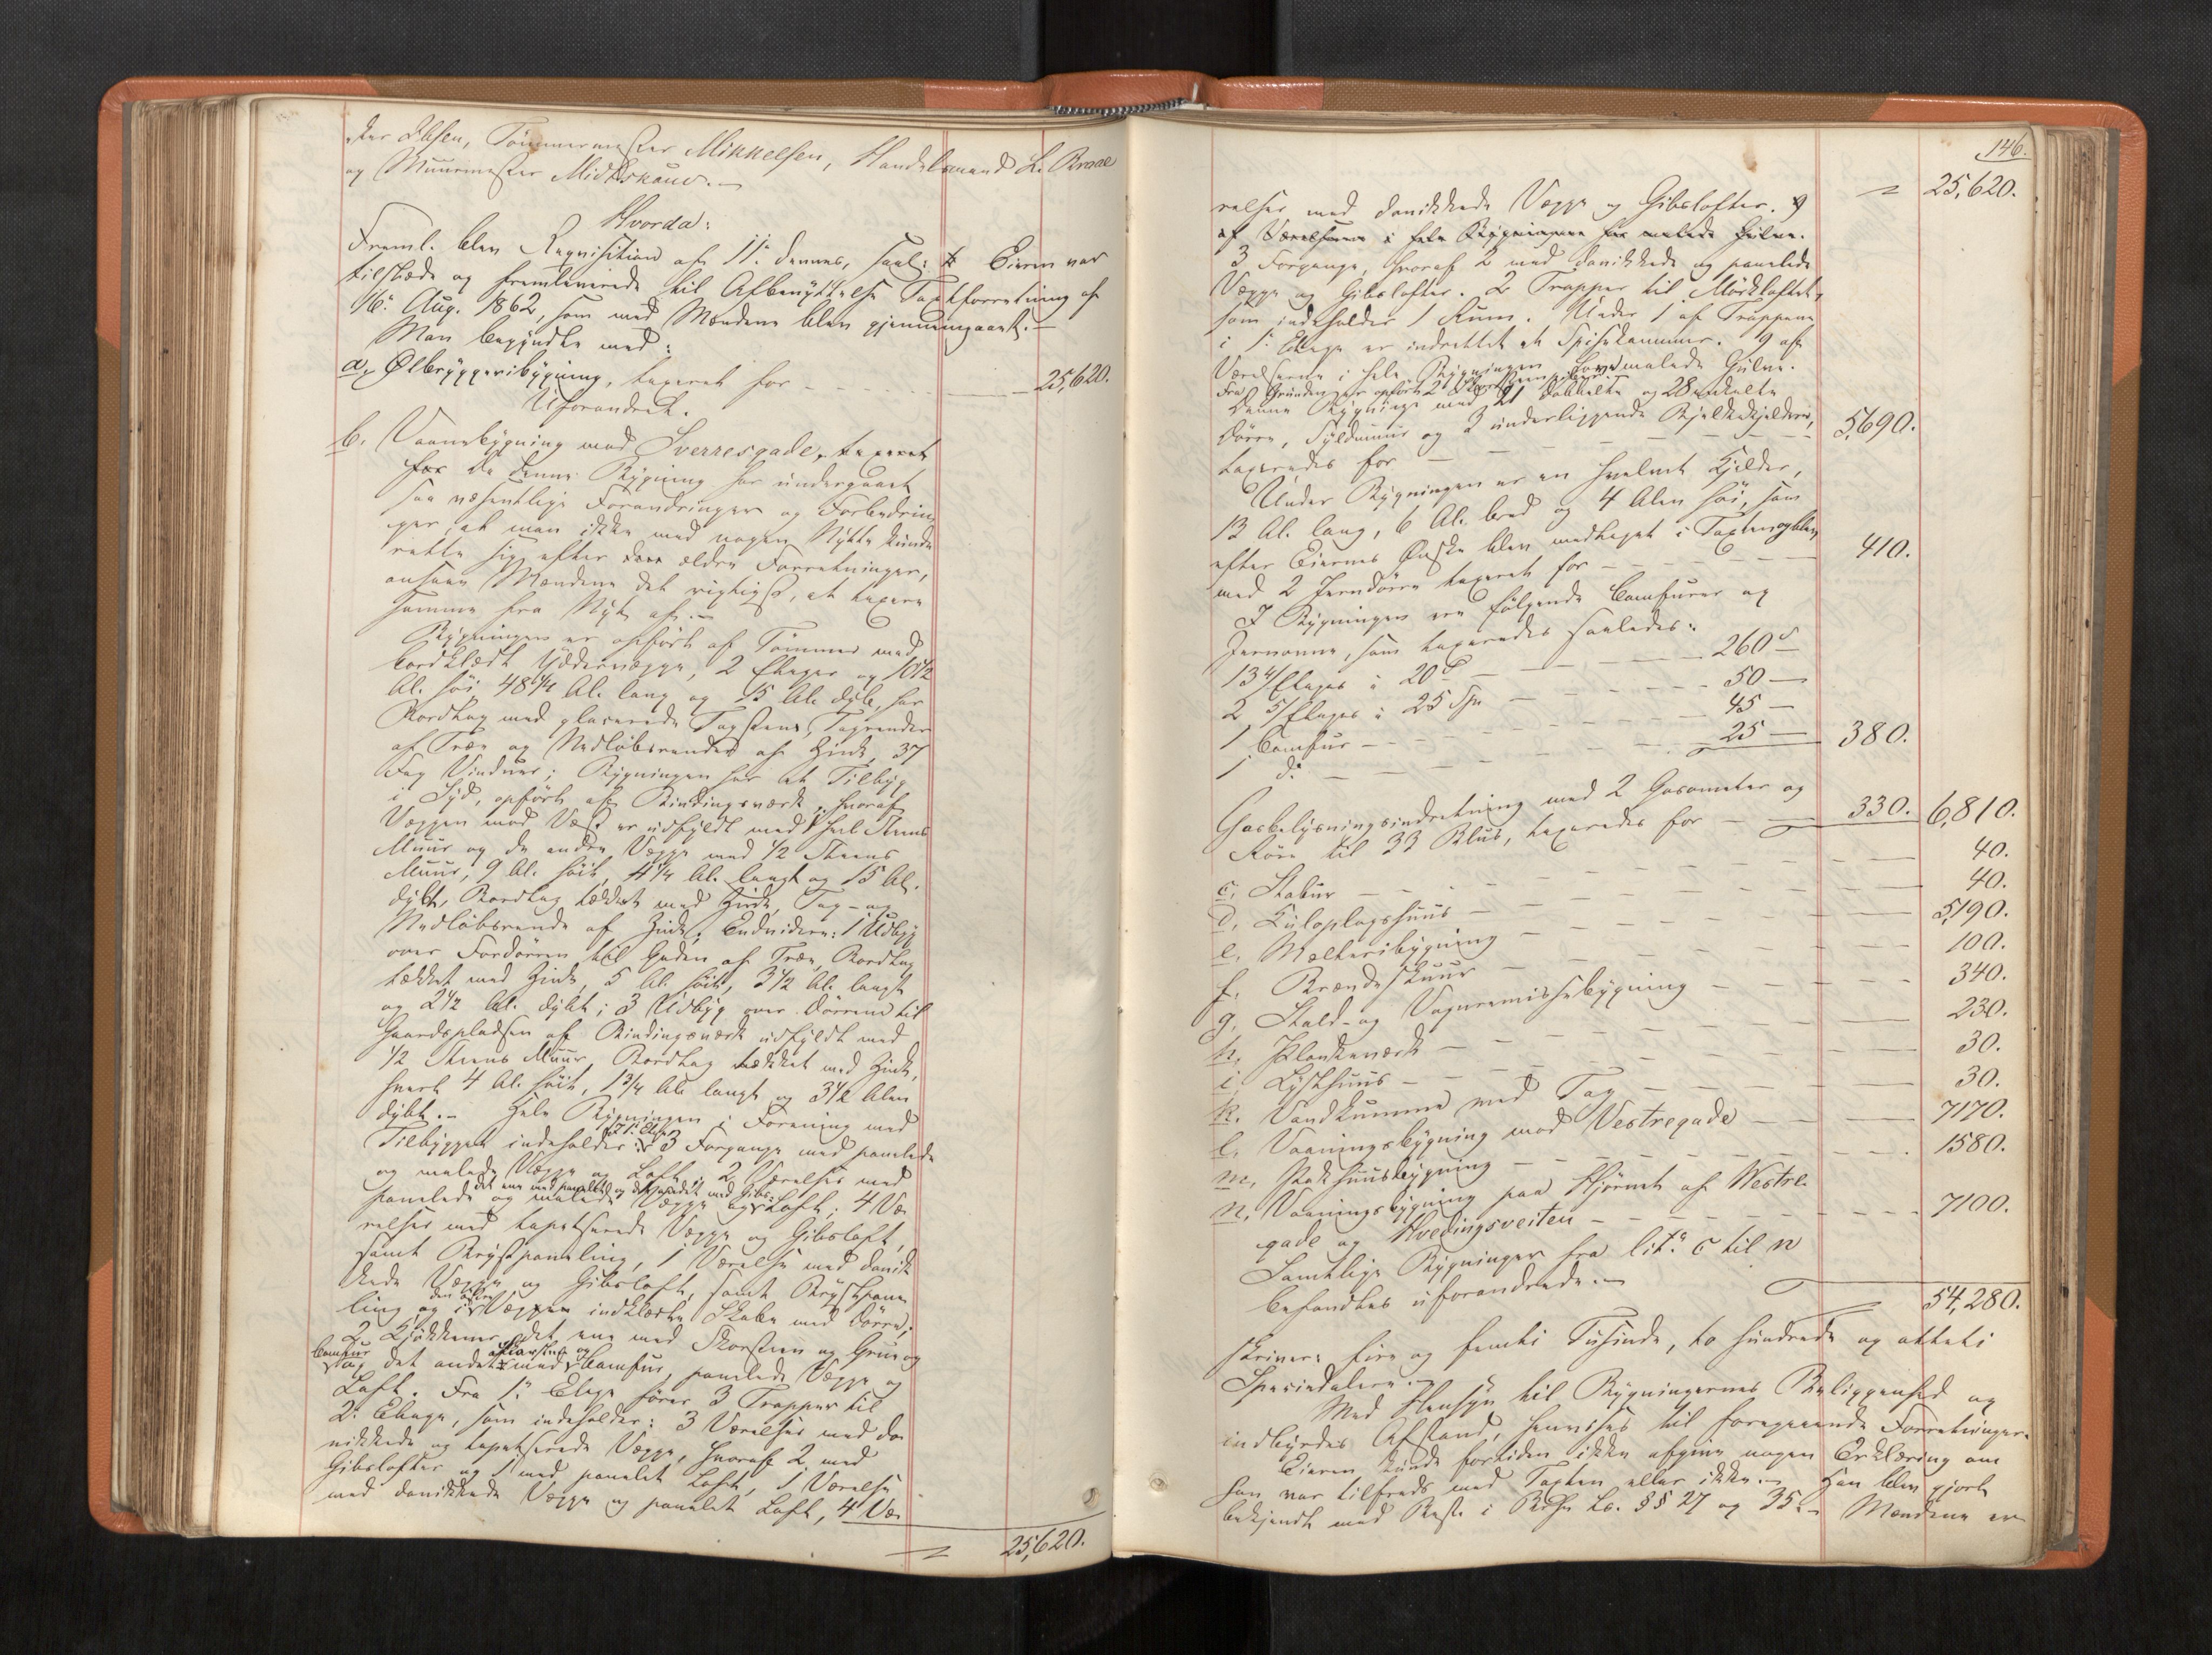 ster Ibsen, Tømmermester Mikkelsen, Handelsmand L. Braae
og Muurmester Midtskauw.—
Hvorda:
Freml. blev Requisition af 11te dennes, Eieren var
tilstæde og fremleverede til Afbenyttelse Taxtforretning af
16de Aug. 1862, som med Mændene blev gjennemgaaet.—
Man begyndte med:
a, Ølbryggeribygning, taxeret for — 25,620.
Uforandret.
b. Vaanebygning mod Sverresgade, taxeret
for da denne Bygning har undergaaet
saa væsentlige Forandringer og Forbedrin-
ger, at man ikke med nogen Nytte kunde
rette sig efter den ældre Forretninger,
ansaae Mændene det rigtigst, at taxere
samme fra Nyt af.—
Bygningen er opført af Tømmer med
bordklædt Ydervægge, 2 Etager og 10 1/2
Al. høi, 48 1/4 Al. lang og 15 Al. dyb, har
Bordtag med glacerede Tagsteen, Tagrender
af Træ og Nedløbsrender af Zink, 37
Fag Vinduer; Bygningen har et Tilbyg
i Syd, opført af Bindingsværk, hvoraf
Væggen mod Vest er udfyldt med 1 heel Steens
Muur og de andre Vægge med 1/2 Steens
Muur, 9 Al. høit, 4 1/4 Al. langt og 15 Al.
dybt, Bordtag tækket med Zink, Tag- og
Nedløbsrende af Zink. Endvidere: 1 Udbyg
over Fordørren til Gaden af Træ, Bordtag
tækket med Zink, 5 Al. høit, 3 1/2 Al. langt
og 2 1/2 Al. dybt; 3 Udbyg over Dørrene til
Gaardspladsen af Bindingsværk udfyldt med
1/2 Steens Muur, Bordtag tækket med Zink,
hvert 4 Al. høit, 1 3/4 Al. langt og 3 1/2 Alen
dybt.— Hele Bygningen i Forening med
Tilbygget indeholder: i 1ste Etage 3 Forgange med panelede
og malede Vægge og Loft, 2 Værelser med
panelede og malede Vægge og det ene med panelet og det andet med Gibs-Loft; 4 Væ-
relser med tapetserede Vægge og Gibsloft,
samt Brystpaneling, 1 Værelse med danik-
kede Vægge og Gibsloft, samt Brystpane-
ling og i den østre Væggen indklædte Skabe med Dørre;
2 Kjøkkener, det ene med Skorsteen og Grue og
Comfur og det andet med Skorsteen og Comfur, panelede Vægge og
Loft. Fra 1ste Etage fører 3 Trapper til
2. Etage, som indeholder: 3 Værelser med da-
nikkede og tapetserede Vægge, hvoraf 2 med
Gibslofter og 1 med panelet Loft, 1 Værelse
med danikkede Vægge og panelet Loft, 4 Væ-
25,620.
146.
25,620.
relser med danikkede Vægge og Gibslofter. 9
af Værelserne i hele Bygningen har malede Gulve.
3 Forgange, hvoraf 2 med danikkede og panelede
Vægge og Gibslofter. 2 Trapper til Mørkloftet,
som indeholder 1 Rum. Under 1 af Trappene
i 1. Etage er indrettet et Spisekammer. 9 af
Værelserne i hele Bygningen have malede Gulve.
Fra Grunden er opført 2 Skorsteenspiber.
Denne Bygning med 21 dobbelte og 28 enkelte
Dørre, Syldmuur og 2 underliggende Bjelkekjeldere,
taxeredes for — 5,690.
Under Bygningen er en hvelvet Kjelder,
13 Al. lang, 6 Al. bred og 4 Alen høi, som
efter Eierens Ønske blev medtaget i Taxten og blev
med 2 Jerndørre taxeret for — 410.
I Bygningen ere følgende Comfurer og
Jernovne, som taxeredes saaledes:
13 4/Etages à 20 — 260
2 5/Etages à 25 Spd — 50 —
1 Comfur — 45 —
1 do — 25 — 380.
Gasbelysningsindretning med 2 Gasometer og
Rør til 33 Blus, taxeredes for — 330. 6,810.
c, Stabur — 40.
d, Kuloplagshuus — 40.
e, Malteribygning — 5,190.
f, Brændeskuur — 100.
g, Stald- og Vognremissebygning — 340.
h, Plankeværk — 230.
i, Lysthuus — 30.
k, Vandkumme med Tag — 30.
l, Vaaningsbygning mod Vestregade — 7170.
m, Pakhuusbygning — 1580.
n, Vaaningsbygning paa Hjørnet af Westre-
gade og Hvedingsveiten — 7100.
Samtlige Bygninger fra lit. c til n
befandtes uforandrede.—
54,280.
skriver: fire og femti Tusinde, to hundrede og otteti
Speciedaler.—
Med Hensyn til Bygningernes Beliggenhed og
indbyrdes Afstand, henvises til foregaaende Forretninger.
Eieren kunde fortiden ikke afgive nogen Erklæring om
han var tilfreds med Taxten eller ikke.— Han blev gjort
bekjendt med Best. i Br. Lov. §§ 27 og 35.— Mændene er